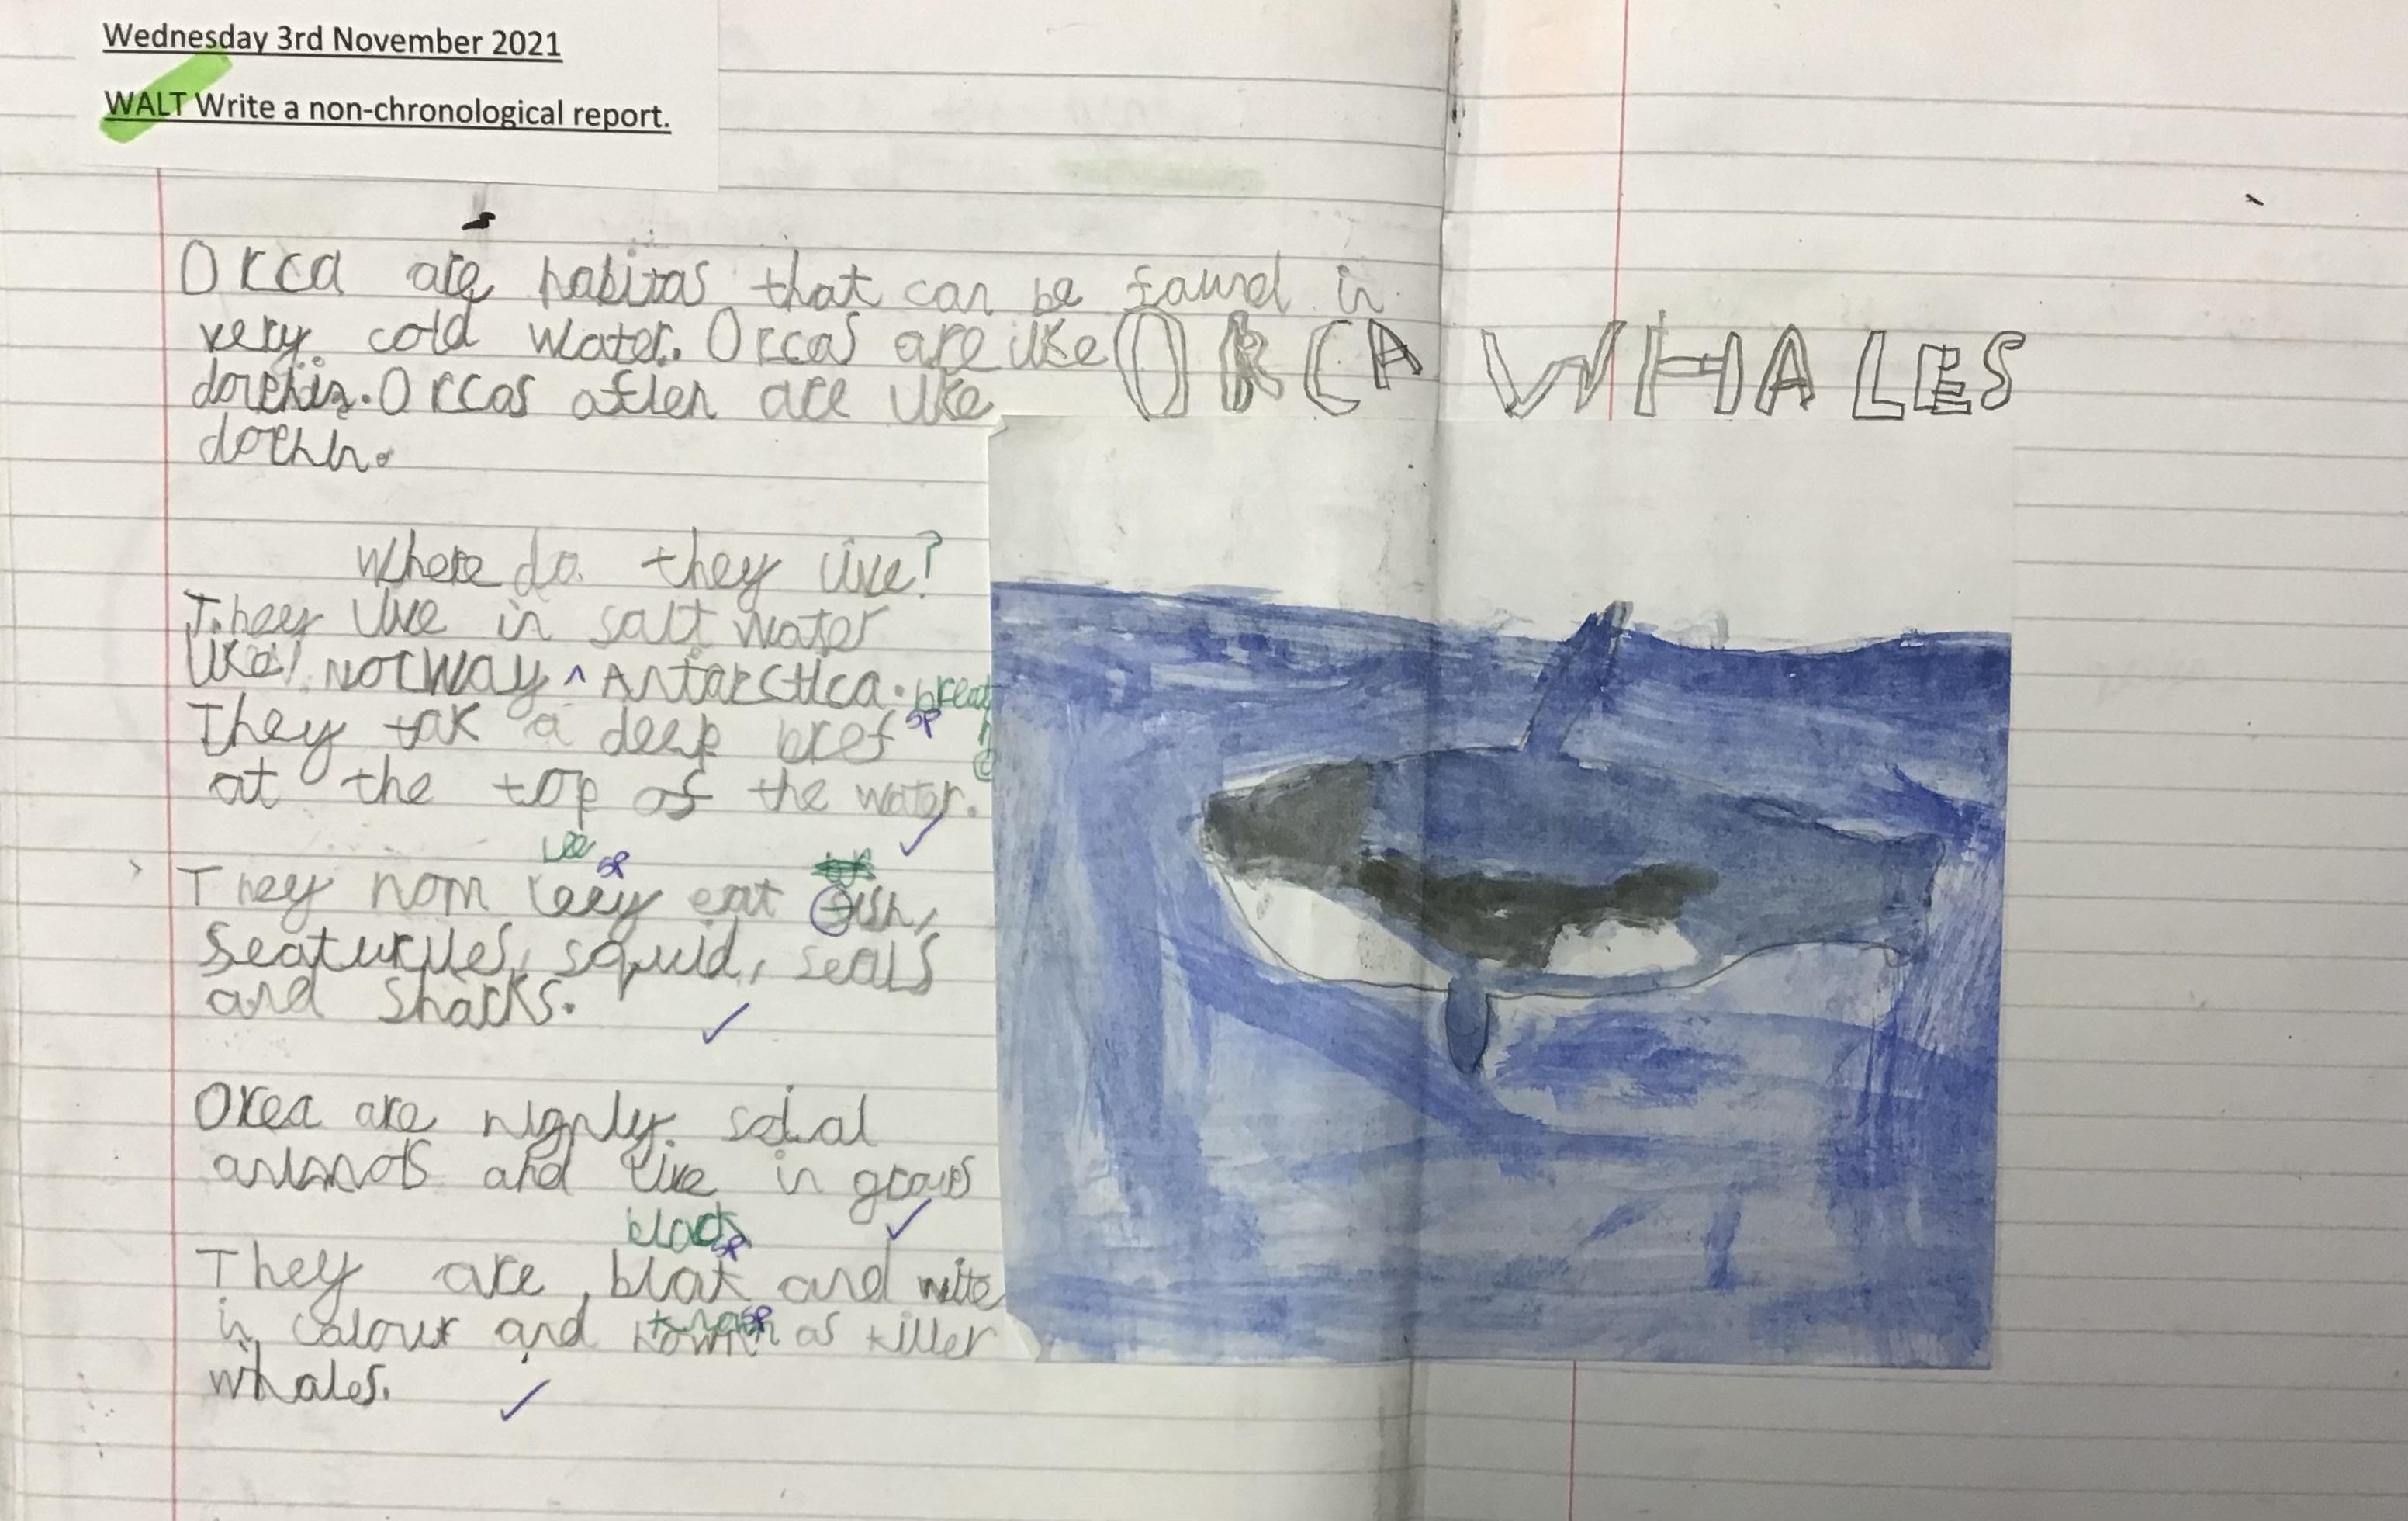 Wednesday 3rd November 2021
WALT Write a non-chronological report.
Orca are habitas that can be found in
very cold water. Orcas are like
Orcas often are like
ORCA WHALES
Where do they live?
They live in salt water
like Norway ^ Antarctica.
breath
They tak a deep bref sp
at the top of the water.
sp
They nom leey eat fish,
seaturtles, squid, seals
and sharks.
Orca are highly. social
animals and live in groups
black sp
They are, blak and wite
in colour and as killer
sp
whales.